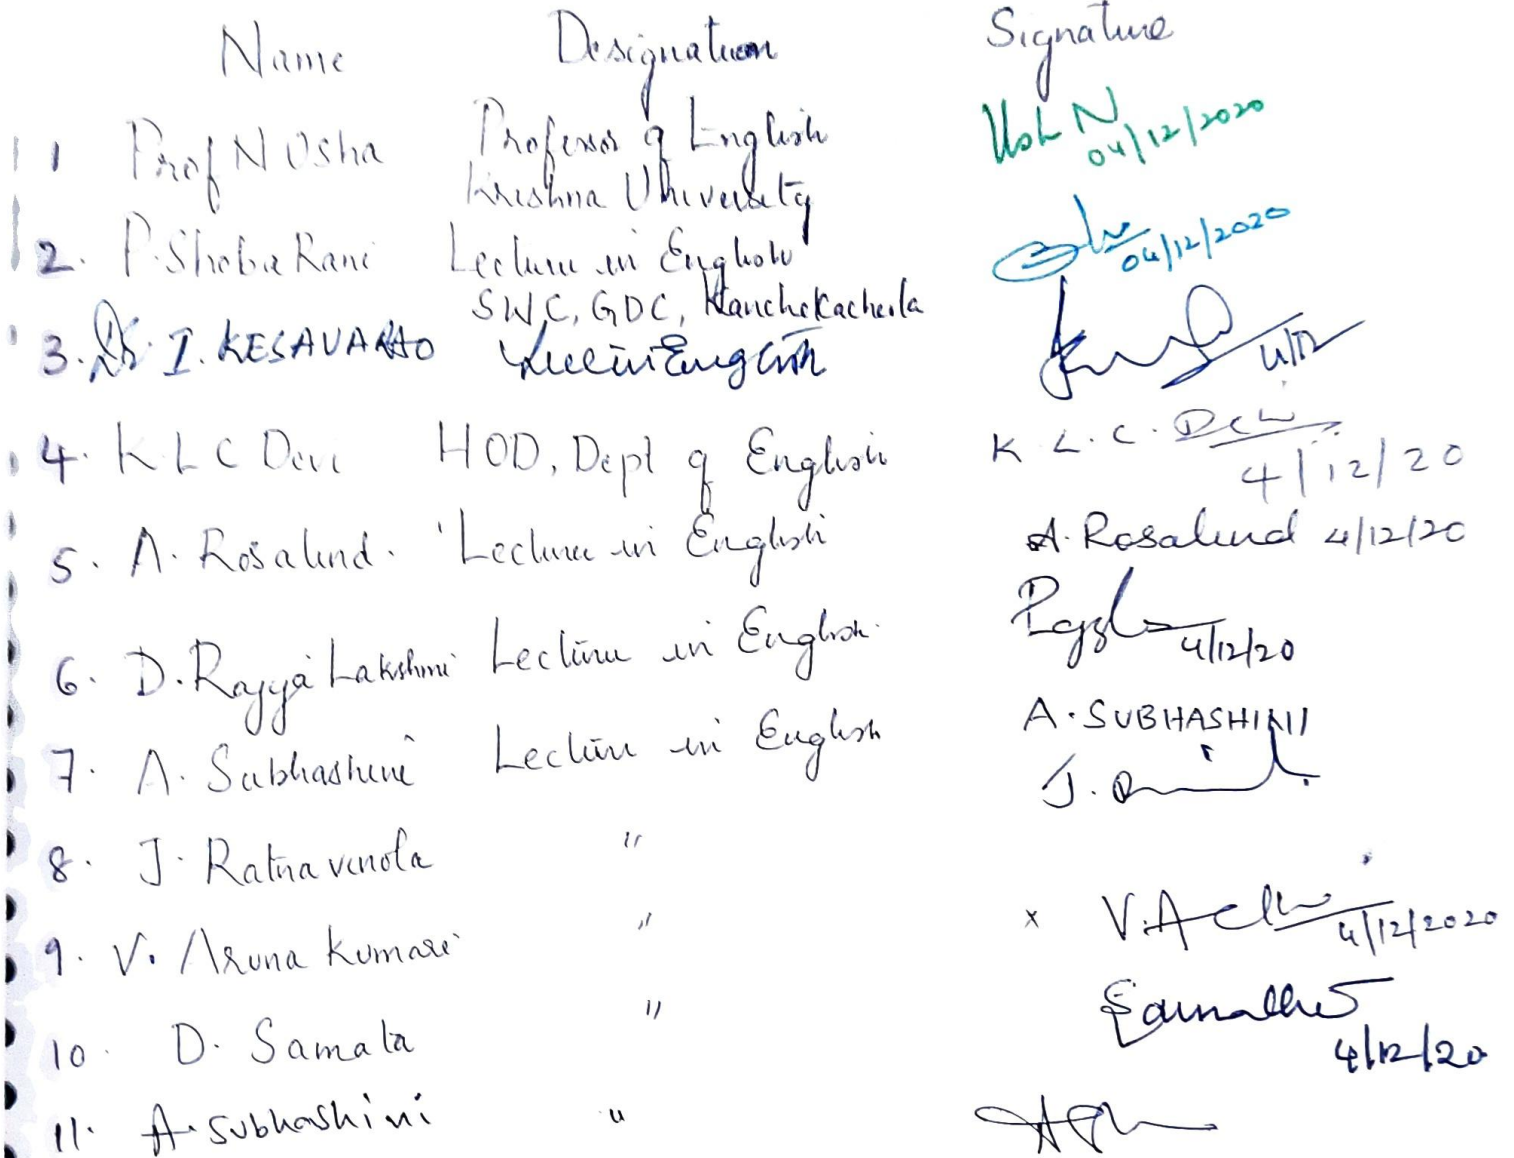 Name Designation Signature
1 Prof N Usha Professor of English Ush N 04/12/2020
Krishna University
2. P. Shoba Rani Lecturer in English 04/12/2020
SWC, GDC, Kanchikacherla
3. Dr. I. KESAVARAO Lec in English 4/12
4. K L C Devi HOD, Dept of English K. L. C. Devi 4/12/20
5. A. Rosalind. Lecturer in English A. Rosalind 4/12/20
6. D. Rajya Lakshmi Lecturer in English 4/12/20
7. A. Subhashini Lecturer in English A. SUBHASHINI
8. J. Ratna vinola " J.
9. V. Aruna Kumari " x V.A 4/12/2020
10. D. Samata " 4/12/20
11. A. Subhashini "